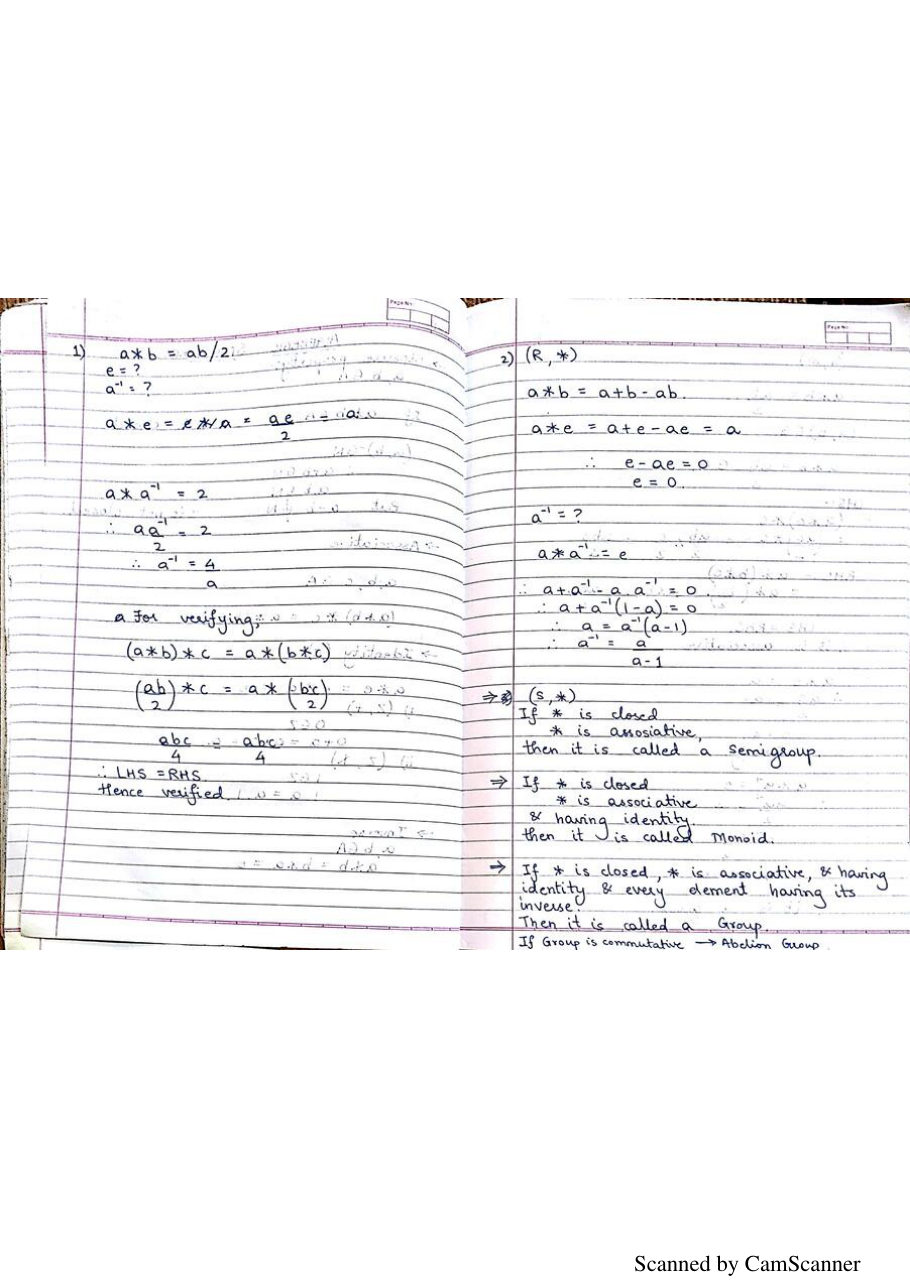 Page No
1) a*b = ab/2
e = ?
a⁻¹ = ?
a * e = e * a = ae/2 = a
a * a⁻¹ = 2
∴ aa⁻¹/2 = 2
∴ a⁻¹ = 4/a
a For verifying,
(a*b)*c = a*(b*c)
(ab/2)*c = a*(bc/2)
abc/4 = abc/4
∴ LHS = RHS
Hence verified.
Page No
2) (R, *)
a*b = a+b-ab.
a*e = a+e-ae = a
∴ e-ae = 0
e = 0.
a⁻¹ = ?
a*a⁻¹ = e
∴ a+a⁻¹-a a⁻¹ = 0
∴ a+a⁻¹(1-a) = 0
∴ a = a⁻¹(a-1)
∴ a⁻¹ = a/a-1
⇒ (S, *)
If * is closed
* is assosiative,
then it is called a semigroup.
⇒ If * is closed
* is associative
& having identity.
then it is called Monoid.
⇒ If * is closed, * is associative, & having
identity & every element having its
inverse.
Then it is called a Group.
If Group is commutative → Abelion Group
Scanned by CamScanner